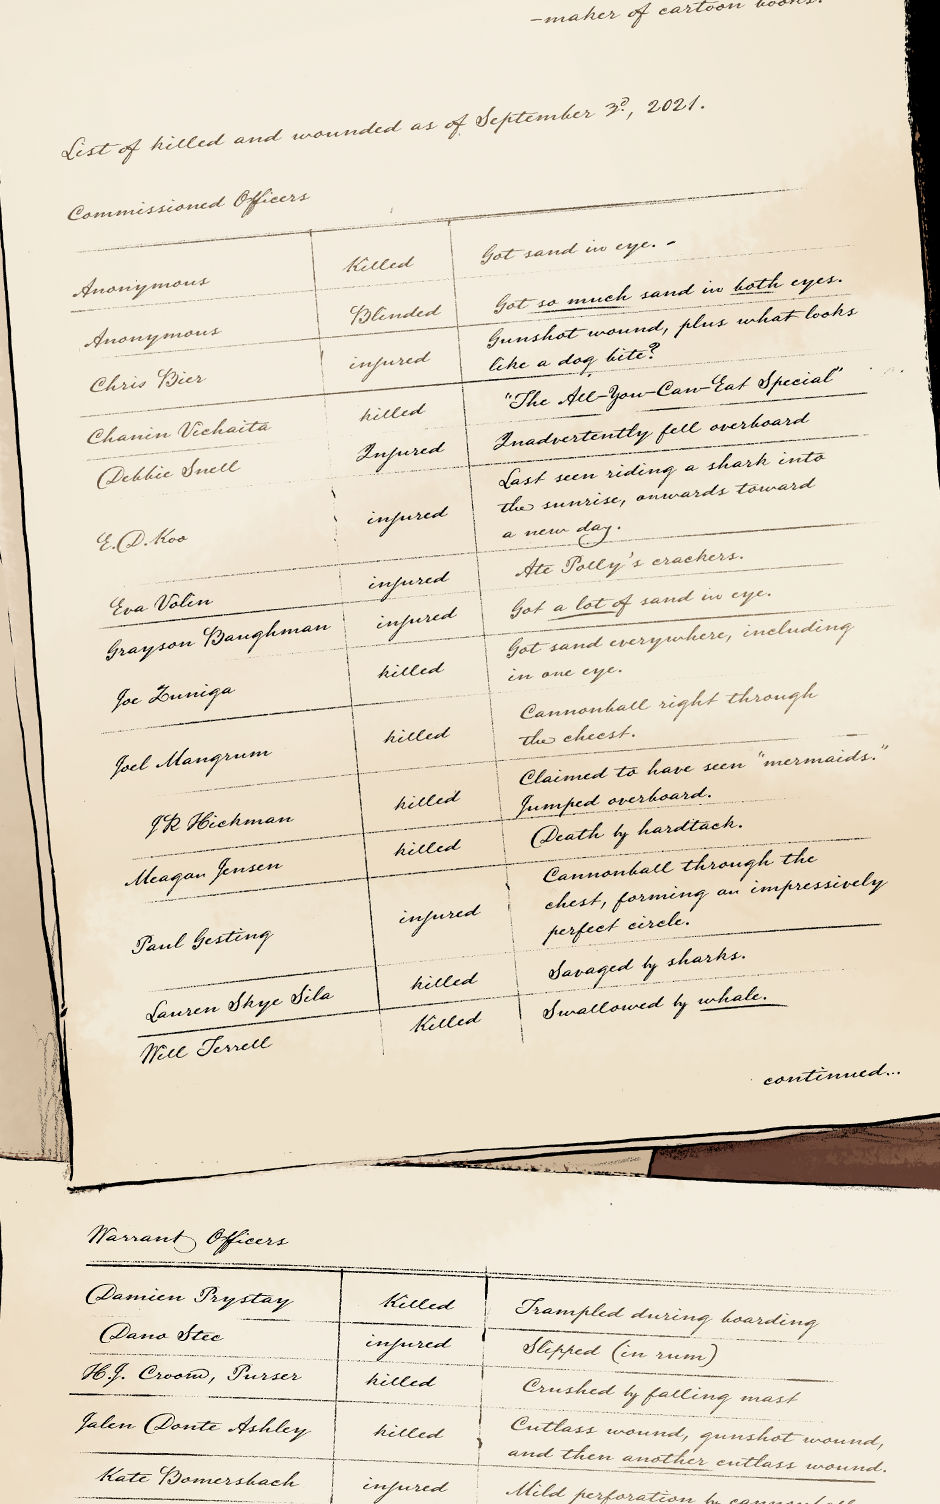 -maker of cartoon books.
List of killed and wounded as of September 3d, 2021.
Commissioned Officers
Anonymous Killed Got sand in eye. -
Anonymous Blended Got so much sand in both eyes.
Chris Bier injured Gunshot wound, plus what looks
like a dog bite?
Chanin Vichaita killed "The All-You-Can-Eat Special"
Debbie Snell Injured Inadvertently fell overboard
E.D. Koo injured Last seen riding a shark into
the sunrise, onwards toward
a new day.
Eva Volin injured Ate Polly's crackers.
Grayson Baughman injured Got a lot of sand in eye.
Joe Zuniga killed Got sand everywhere, including
in one eye.
Joel Mangrum killed Cannonball right through
the cheest.
JR Hickman killed Claimed to have seen "mermaids."
Jumped overboard.
Meagan Jensen killed Death by hardtack.
Paul Gesting injured Cannonball through the
chest, forming an impressively
perfect circle.
Lauren Skye Sila killed Savaged by sharks.
Will Terrell Killed Swallowed by whale.
continued...
Warrant Officers
Damien Prystay Killed Trampled during boarding
Dano Stec injured Slipped (in rum)
H.J. Croom, Purser killed Crushed by falling mast
Jalen Donte Ashley killed Cutlass wound, gunshot wound,
and then another cutlass wound.
Kate Bomersbach injured Mild perforation by